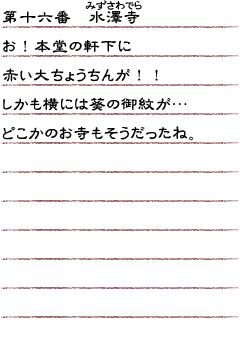 みずさわでら
第十六番　水澤寺
お！本堂の軒下に
赤い大ちょうちんが！！
しかも横には葵の御紋が…
どこかのお寺もそうだったね。